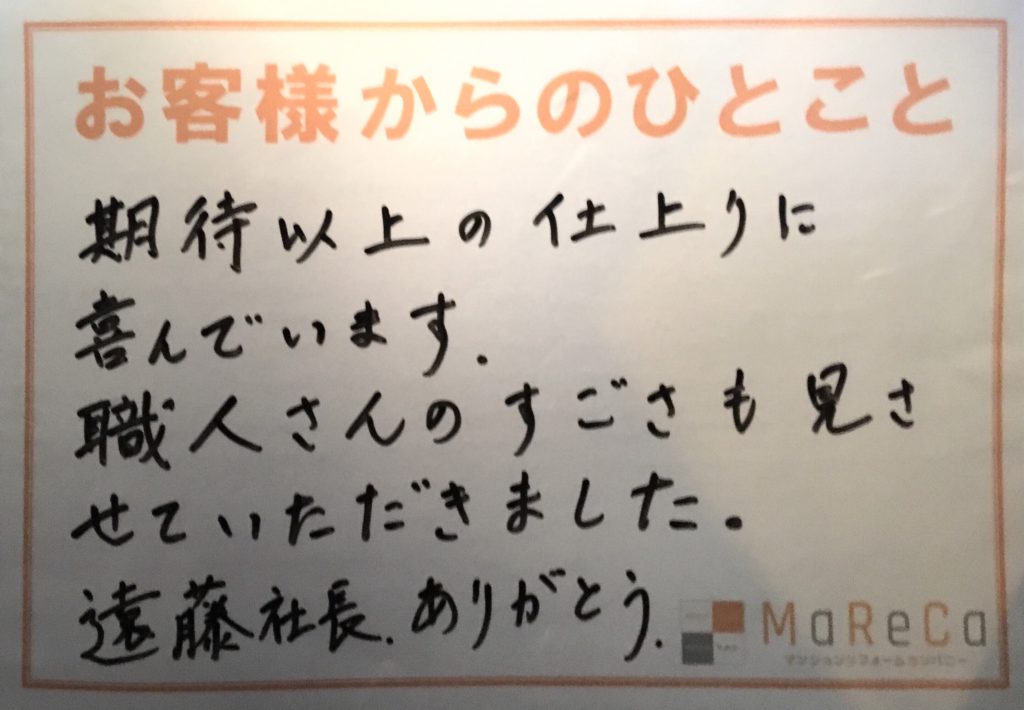 お客様からのひとこと
期待以上の仕上りに
喜んでいます.
職人さんのすごさも見さ
せていただきました。
遠藤社長.ありがとう.
MaReCa
マンションリフォームカンパニー